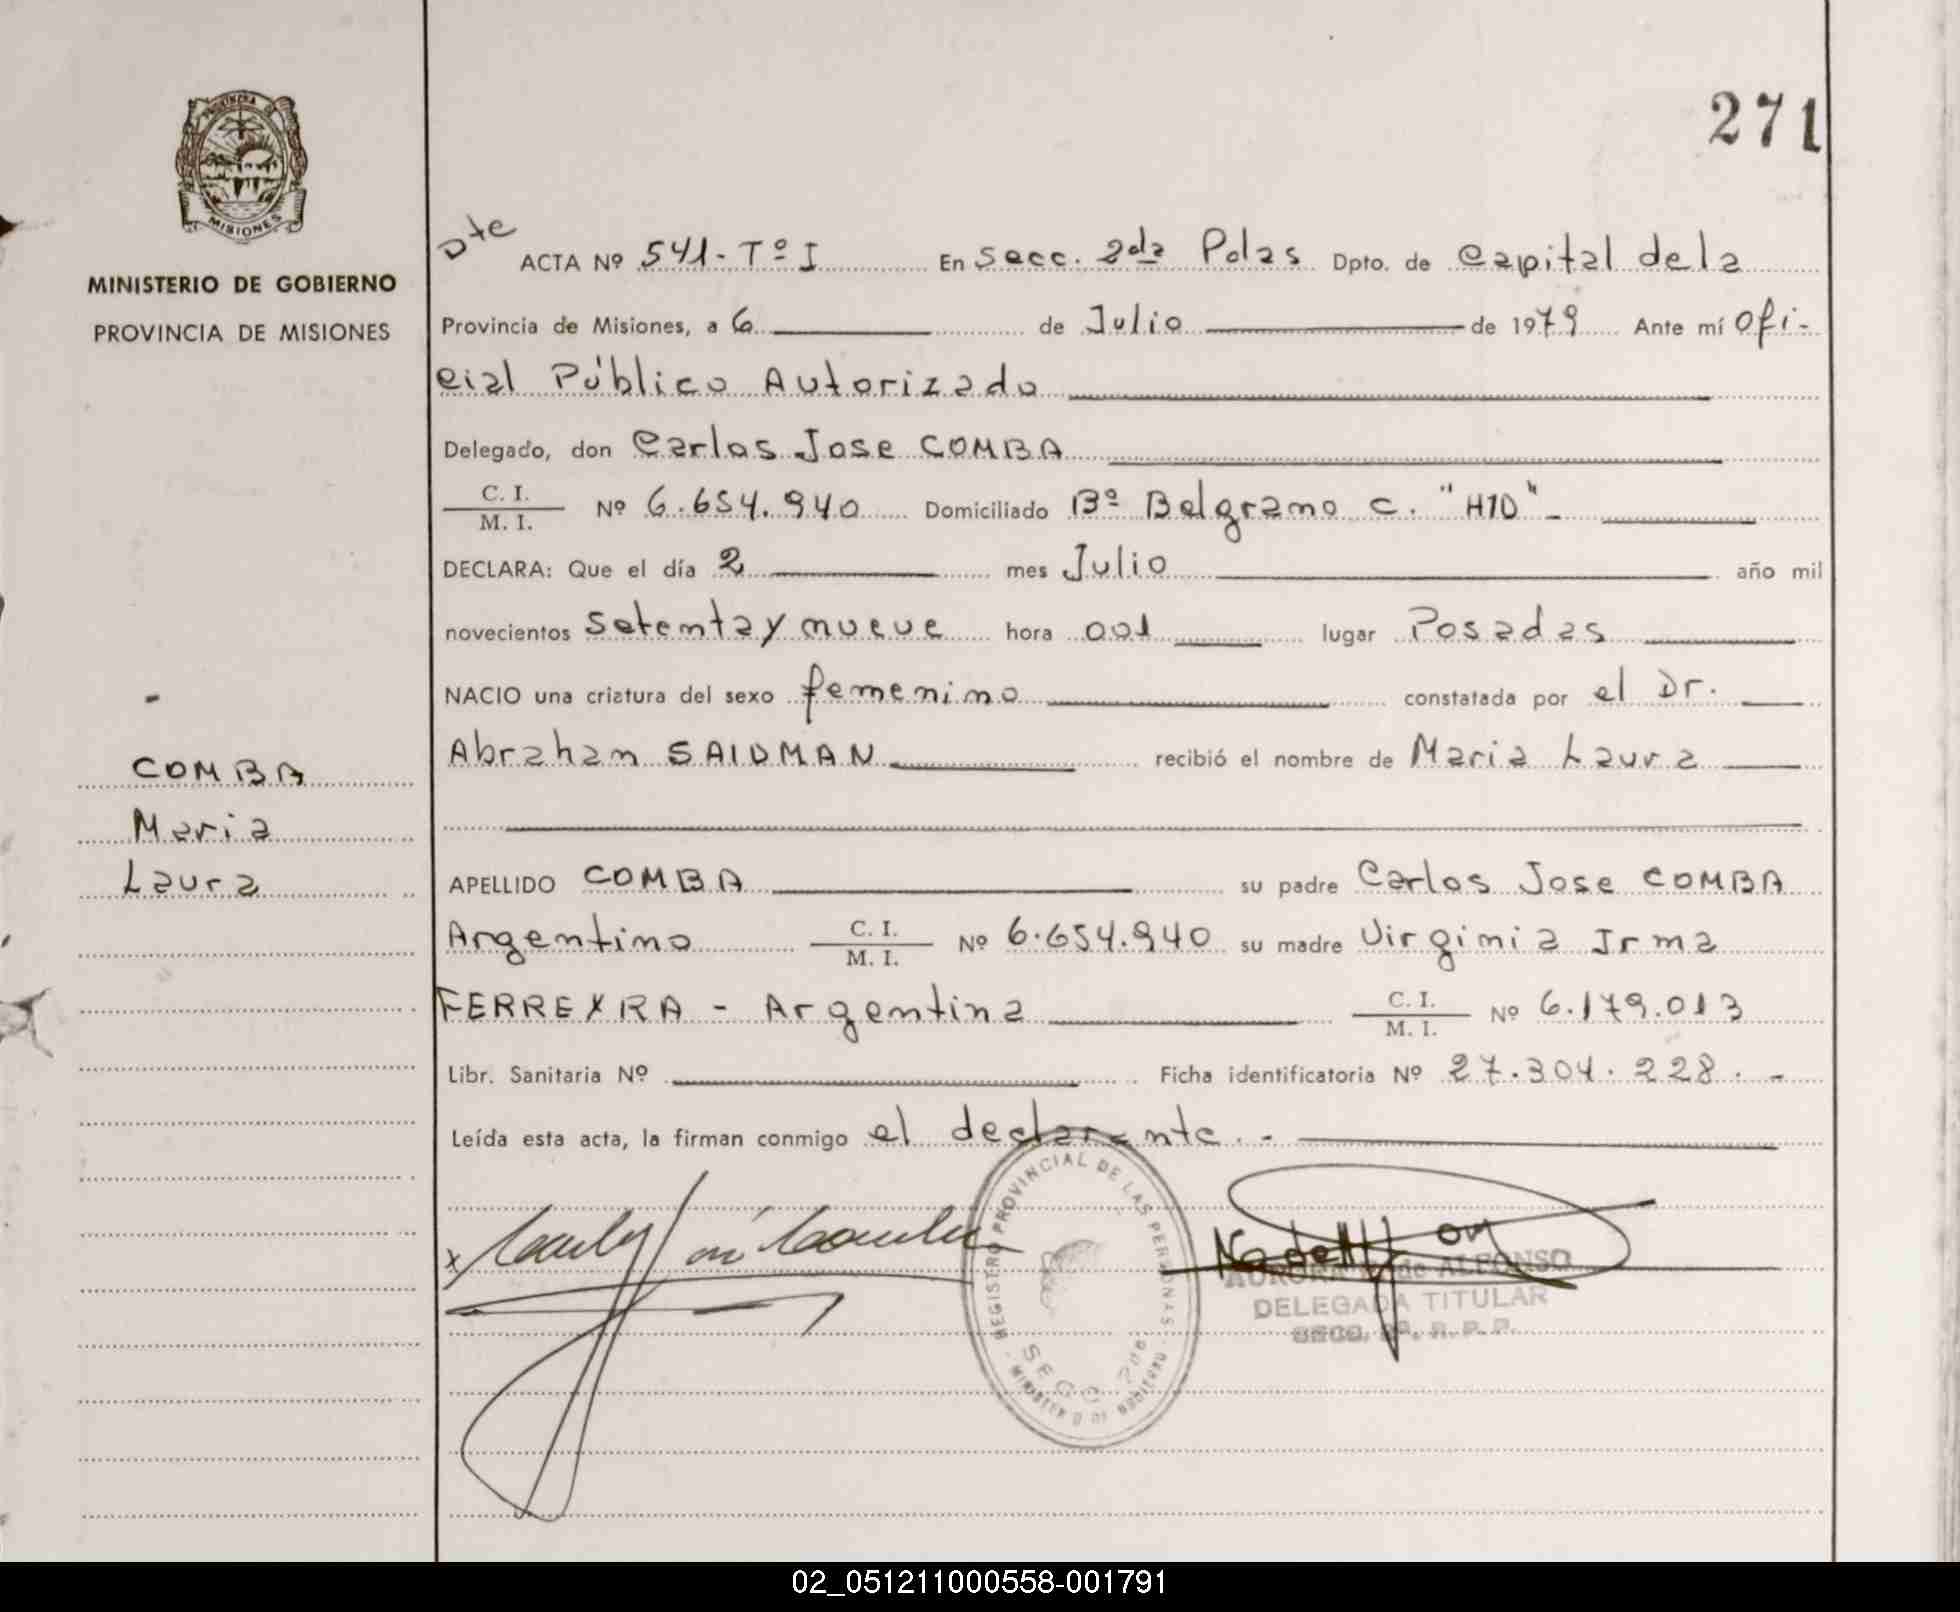 271
PROVINCIA DE
MISIONES
MINISTERIO DE GOBIERNO
PROVINCIA DE MISIONES
Dte
ACTA Nº 541-Tº I En Secc. 2da Pdas Dpto. de Capital de la
Provincia de Misiones, a 6 de Julio de 1979 Ante mí Ofi-
cial Público Autorizado
Delegado, don Carlos Jose COMBA
C. I.
M. I. Nº 6.654.940 Domiciliado Bº Belgrano c. "H10"-
DECLARA: Que el día 2 mes Julio año mil
novecientos setenta y nueve hora 001 lugar Posadas
NACIO una criatura del sexo femenino constatada por el Dr.
Abraham SAIDMAN recibió el nombre de Maria Laura
COMBA
Maria
Laura
APELLIDO COMBA su padre Carlos Jose COMBA
Argentino C. I.
M. I. Nº 6.654.940 su madre Virginia Irma
FERREYRA - Argentina C. I.
M. I. Nº 6.179.013
Libr. Sanitaria Nº Ficha identificatoria Nº 27.304.228.-
Leída esta acta, la firman conmigo el declarante.-
REGISTRO PROVINCIAL DE LAS PERSONAS
MINISTERIO DE GOBIERNO
SECC. 2da
AURORA de ALFONSO
DELEGADA TITULAR
SECC. 2ª. R. P. P.
02_051211000558-001791